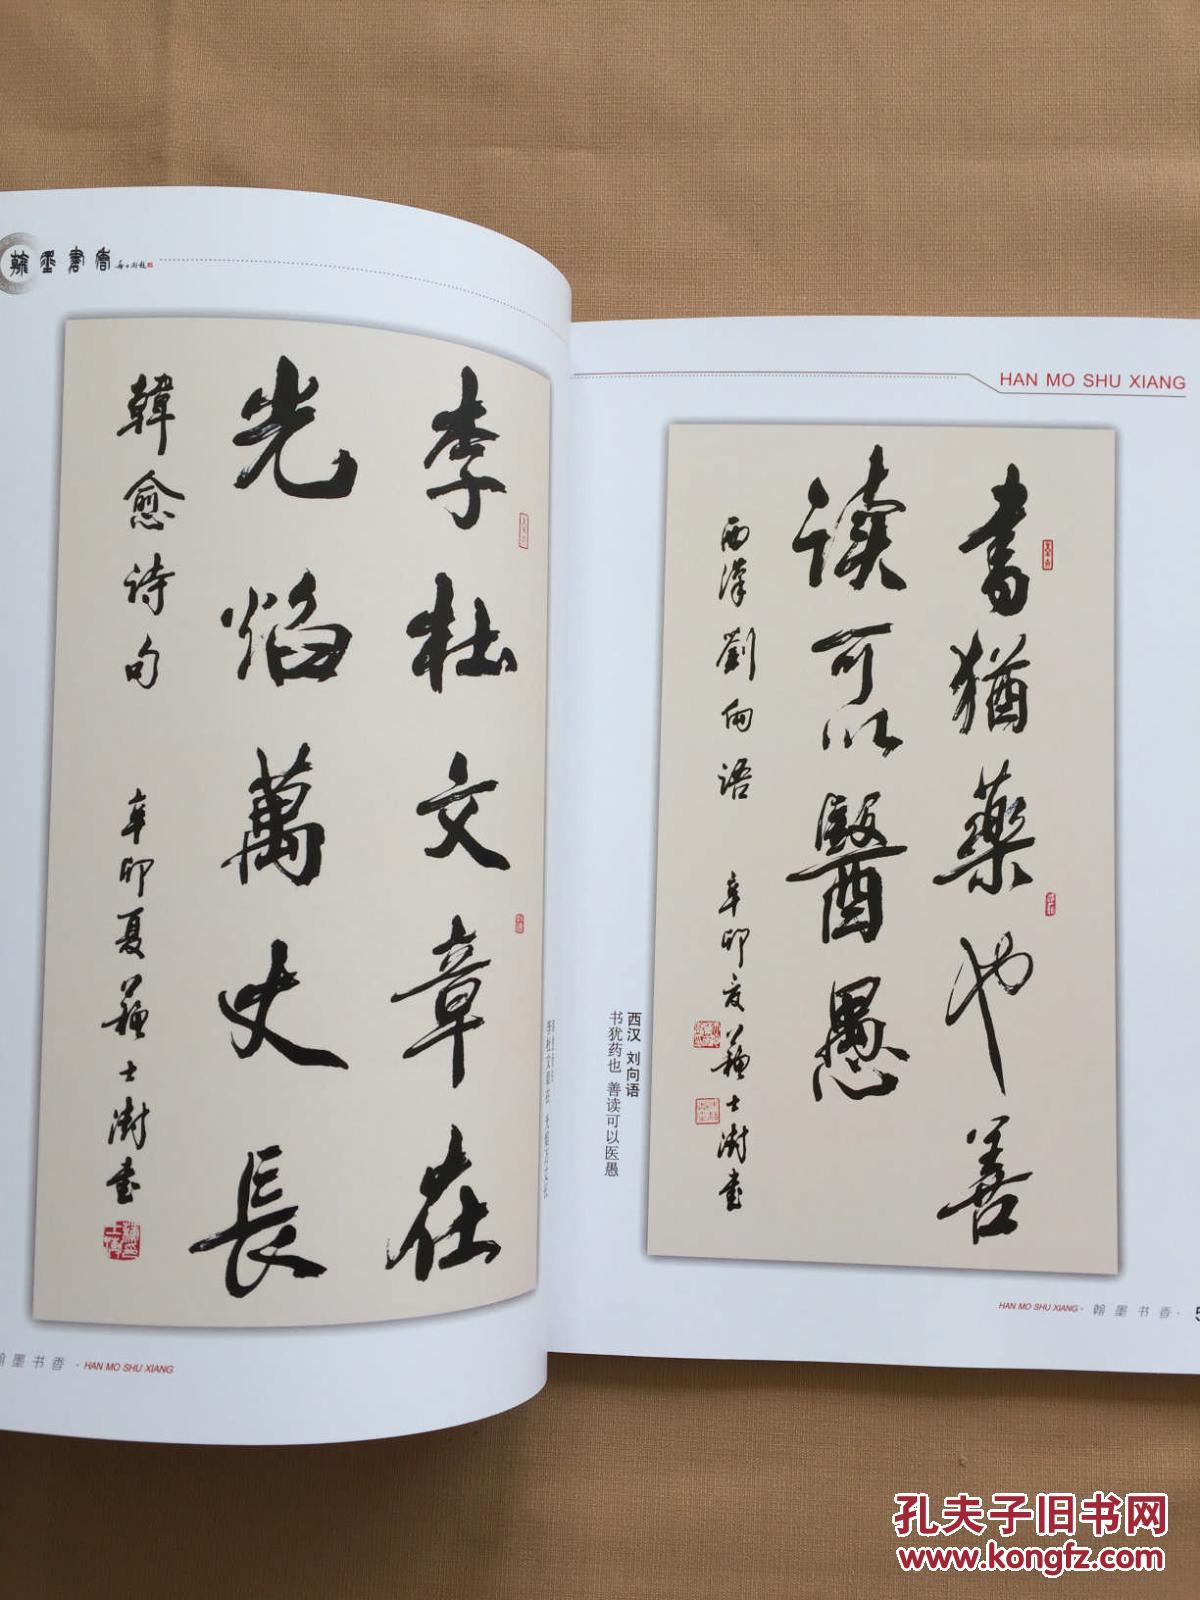 翰墨書香
李杜文章在
光焰萬丈長
韓愈诗句
辛卯夏苏士澍书
李杜文章在 光焰万丈长
翰墨书香 · HAN MO SHU XIANG
HAN MO SHU XIANG
書猶藥也善
读可以醫愚
西漢劉向语
辛卯夏苏士澍书
西汉 刘向语
书犹药也 善读可以医愚
HAN MO SHU XIANG · 翰墨书香 ·
孔夫子旧书网
www.kongfz.com